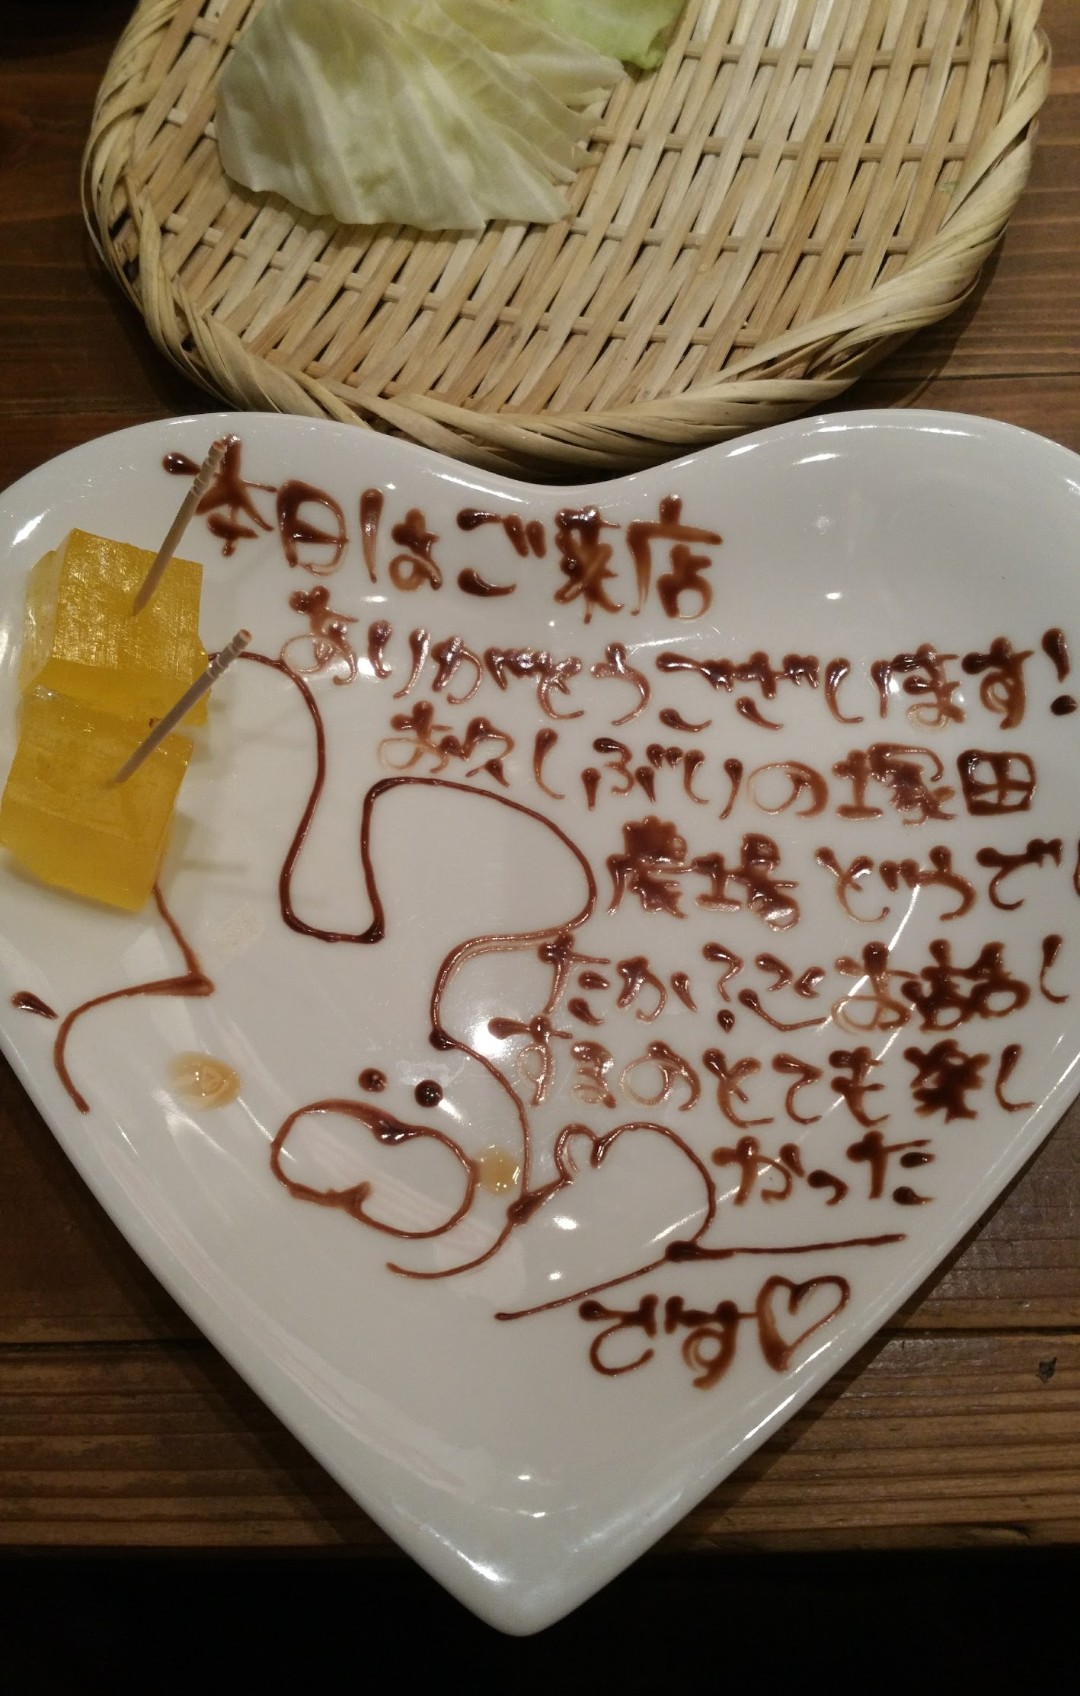 本日はご来店
ありがとうございます!
お久しぶりの塚田
農場どうでし
たか?とお話し
するのとても楽し
かった
です♡